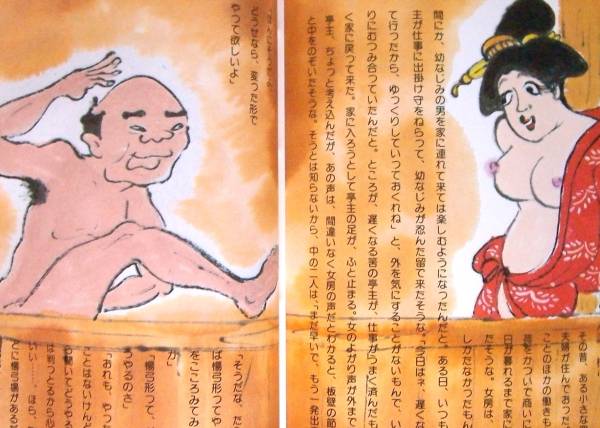 その昔、ある小さな
夫婦が住んでおった
ことのほかの働きも
荷をかついで商いに
日が暮れるまで家に
だそうな。女房は、
しかたなかったもん
間にか、幼なじみの男を家に連れて来ては楽しむようになったんだと。ある日、いつも
主が仕事に出掛け守をねらって、幼なじみが忍んた留で来たそうな。「今日はネ、遅くな
て行ったから、ゆっくりしていっておくれね」と、外を気にすることがないもんで、い
りにむつみ合っていたんだと。ところが、遅くなる筈の亭主が、仕事がうまく済んだも
く家に戻って来た。家に入ろうとして亭主の足が、ふと止まる。女のよがり声が外まで
亭主、ちょっと考え込んだが、あの声は、間違いなく女房の声だとわかると、板壁の節
と中をのぞいたそうな。そうとは知らないから、中の二人は、「まだ早いで、もう一発出
どうせなら、変った形で
やって欲しいよ」
「そうだな、た
ば楊弓形ってや
をこころみてみ
か」
「楊弓形って、
うやるのさ」
「おれも、やっ
ことはないけんど
も聞いてどうやろ
は判っとるから心
いい……ほら、
てに楊弓場がある